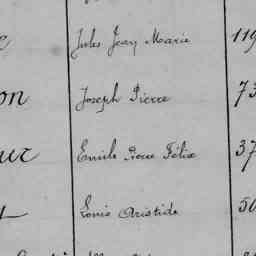 Jules Jean Marie 119
on Joseph Pierre 73
ur Emile Pierre Félix 37
Louis Aristide 50